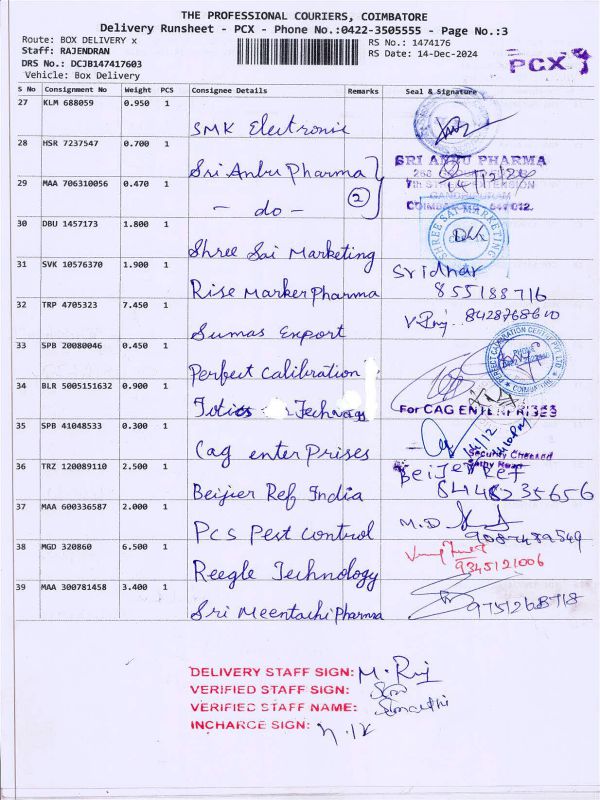 THE PROFESSIONAL COURIERS, COIMBATORE
Delivery Runsheet - PCX - Phone No.:0422-3505555 - Page No.:3
Route: BOX DELIVERY x
RS No.: 1474176
Staff: RAJENDRAN
RS Date: 14-Dec-2024
DRS No.: DCJB147417603
Vehicle: Box Delivery
PCX
S No Consignment No Weight PCS Consignee Details Remarks Seal & Signature
27 KLM 688059 0.950 1
SMK Electronic
28 HSR 7237547 0.700 1
Sri Anbu Pharma
SRI ANBU PHARMA
29 MAA 706310056 0.470 1
- do -
2
14/12/24
30 DBU 1457173 1.800 1
Shree Sai Marketing
SHREE SAI MARKETING
31 SVK 10576370 1.900 1
Rise Marker Pharma
Sridhar
855188716
32 TRP 4705323 7.450 1
Sumas Export
V.Raj 8428768610
33 SPB 20080046 0.450 1
Perfect Calibration
COIMBATORE
34 BLR 5005151632 0.900 1
For CAG ENTERPRISES
35 SPB 41048533 0.300 1
Cag enterPrises
14/12
Security Checked
36 TRZ 120089110 2.500 1
Beijier Ref India
BeiJer Ref
37 MAA 600336587 2.000 1
Pcs Pest Control
M.D
38 MGD 320860 6.500 1
Reegle Technology
9345121006
39 MAA 300781458 3.400 1
Sri Meentachi Pharma
DELIVERY STAFF SIGN: M. Raj
VERIFIED STAFF SIGN:
VERIFIED STAFF NAME: Sumathi
INCHARGE SIGN: